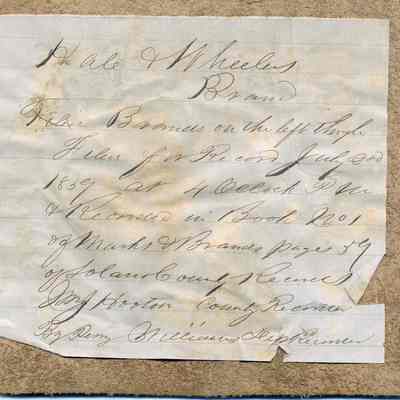 Hale & Wheelers
Brand
Their Brands on the left thigh
Filed for Record July 2nd
1859 at 4 Oclock P.M
& Recorded in Book No 1
of Marks & Brands page 59
of Solano County Records
Horton County Recorder
By Williams